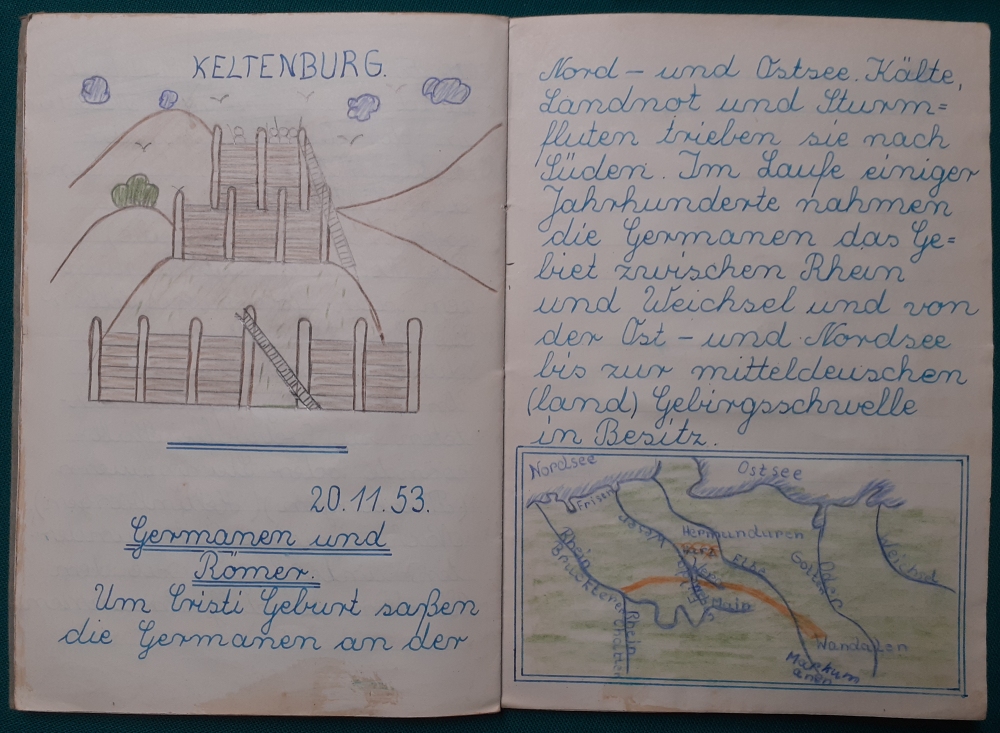 KELTENBURG.
20.11.53.
Germanen und
Römer.
Um Cristi Geburt saßen
die Germanen an der
Nord – und Ostsee. Kälte,
Landnot und Sturm=
fluten trieben sie nach
Süden. Im Laufe einiger
Jahrhunderte nahmen
die Germanen das Ge=
biet zwischen Rhein
und Weichsel und von
der Ost – und Nordsee
bis zur mitteldeuschen
(land) Gebirgsschwelle
in Besitz.
Nordsee
Ostsee
Frisen
Weser
Hermunduren
Harz
Elbe
Rhein
Brukterer
Main
Rhein
Oder
Weichsel
Wandalen
Markum
anen